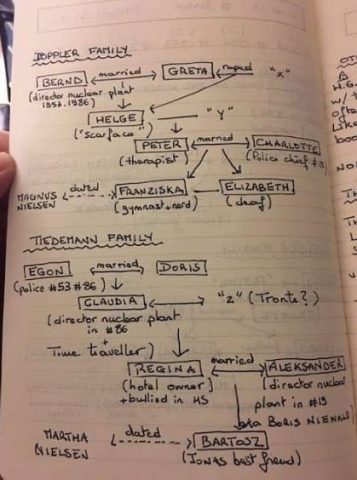 DOPPLER FAMILY
BERND married GRETA raped "x"
(director nuclear plant
1953.1986)
HELGE "Y"
("scarface")
PETER married CHARLOTTE
(therapist) (Police chief #19)
MAGNUS dated FRANZISKA ELIZABETH
NIELSEN (gymnast+nerd) (deaf)
TIEDEMANN FAMILY
EGON married DORIS
(police #53 #86)
CLAUDIA "z" (Tronte?)
(director nuclear plant
in #86
+
Time traveller)
REGINA married ALEKSANDER
(hotel owner) (director nuclear
+bullied in HS plant in #19
aka BORIS NIEWALD
MARTHA dated BARTOSZ
NIELSEN (Jonas best friend)